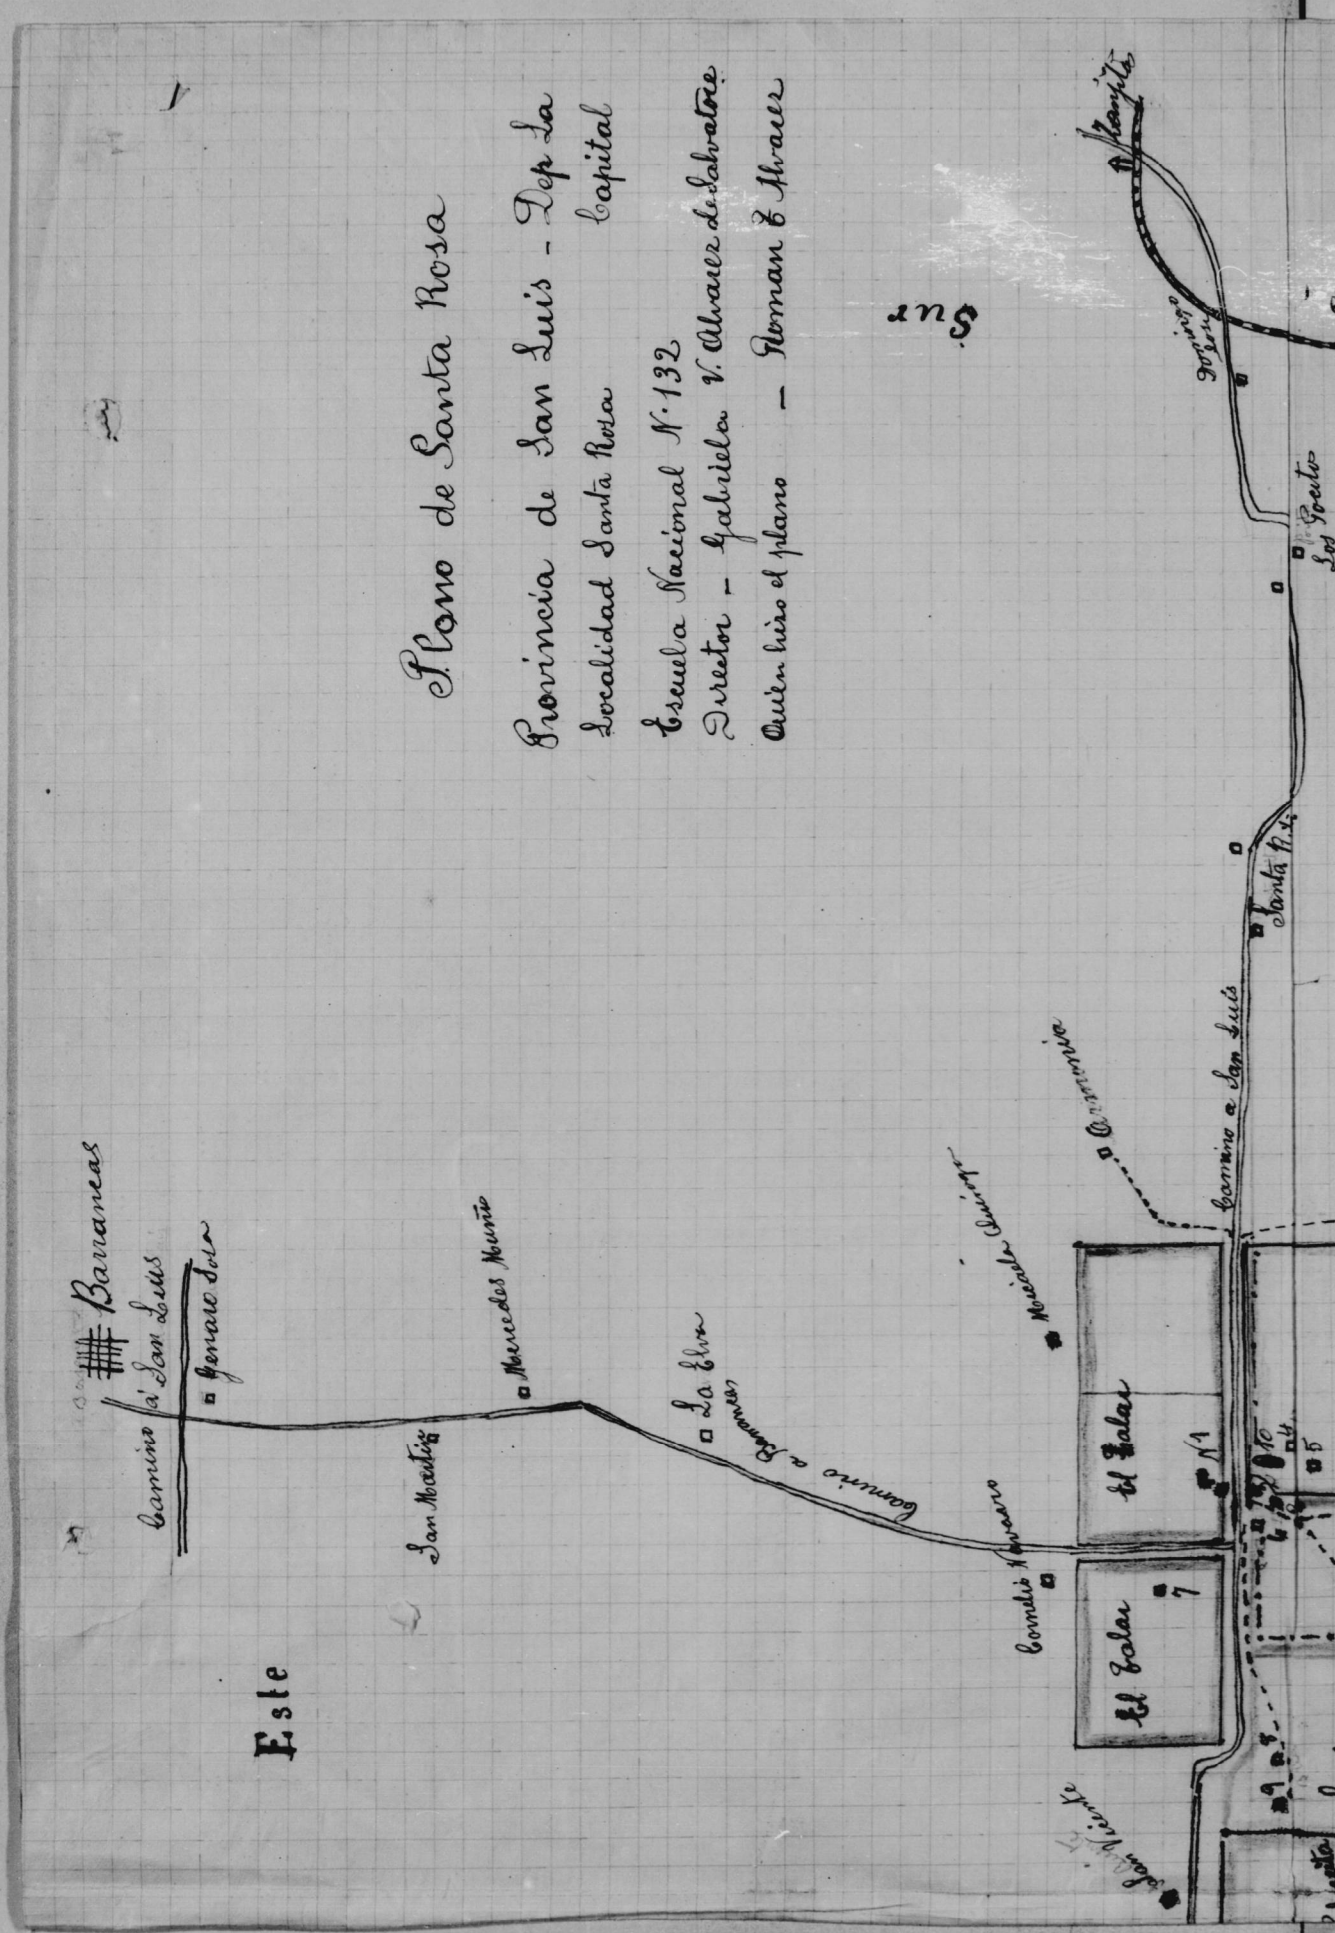 Plano de Santa Rosa
Provincia de San Luis - Dep La
Capital
Localidad Santa Rosa
Escuela Nacional N. 132
Director - Gabriela V. Alvarez de Salvatore
Quien hizo el plano - Roman E Alvarez
Sur
Este
Barrancas
Camino á San Luis
Genaro Sosa
San Martin
Mercedes Muñis
La Elva
Camino a Barrancas
Cornelio Navarro
Micaela Quiroga
Armonia
El Talar
El Talar
N 1
7
Camino a San Luis
Santa R.
Los Pocitos
Domingo
San Vicente
10
4
5
9
8